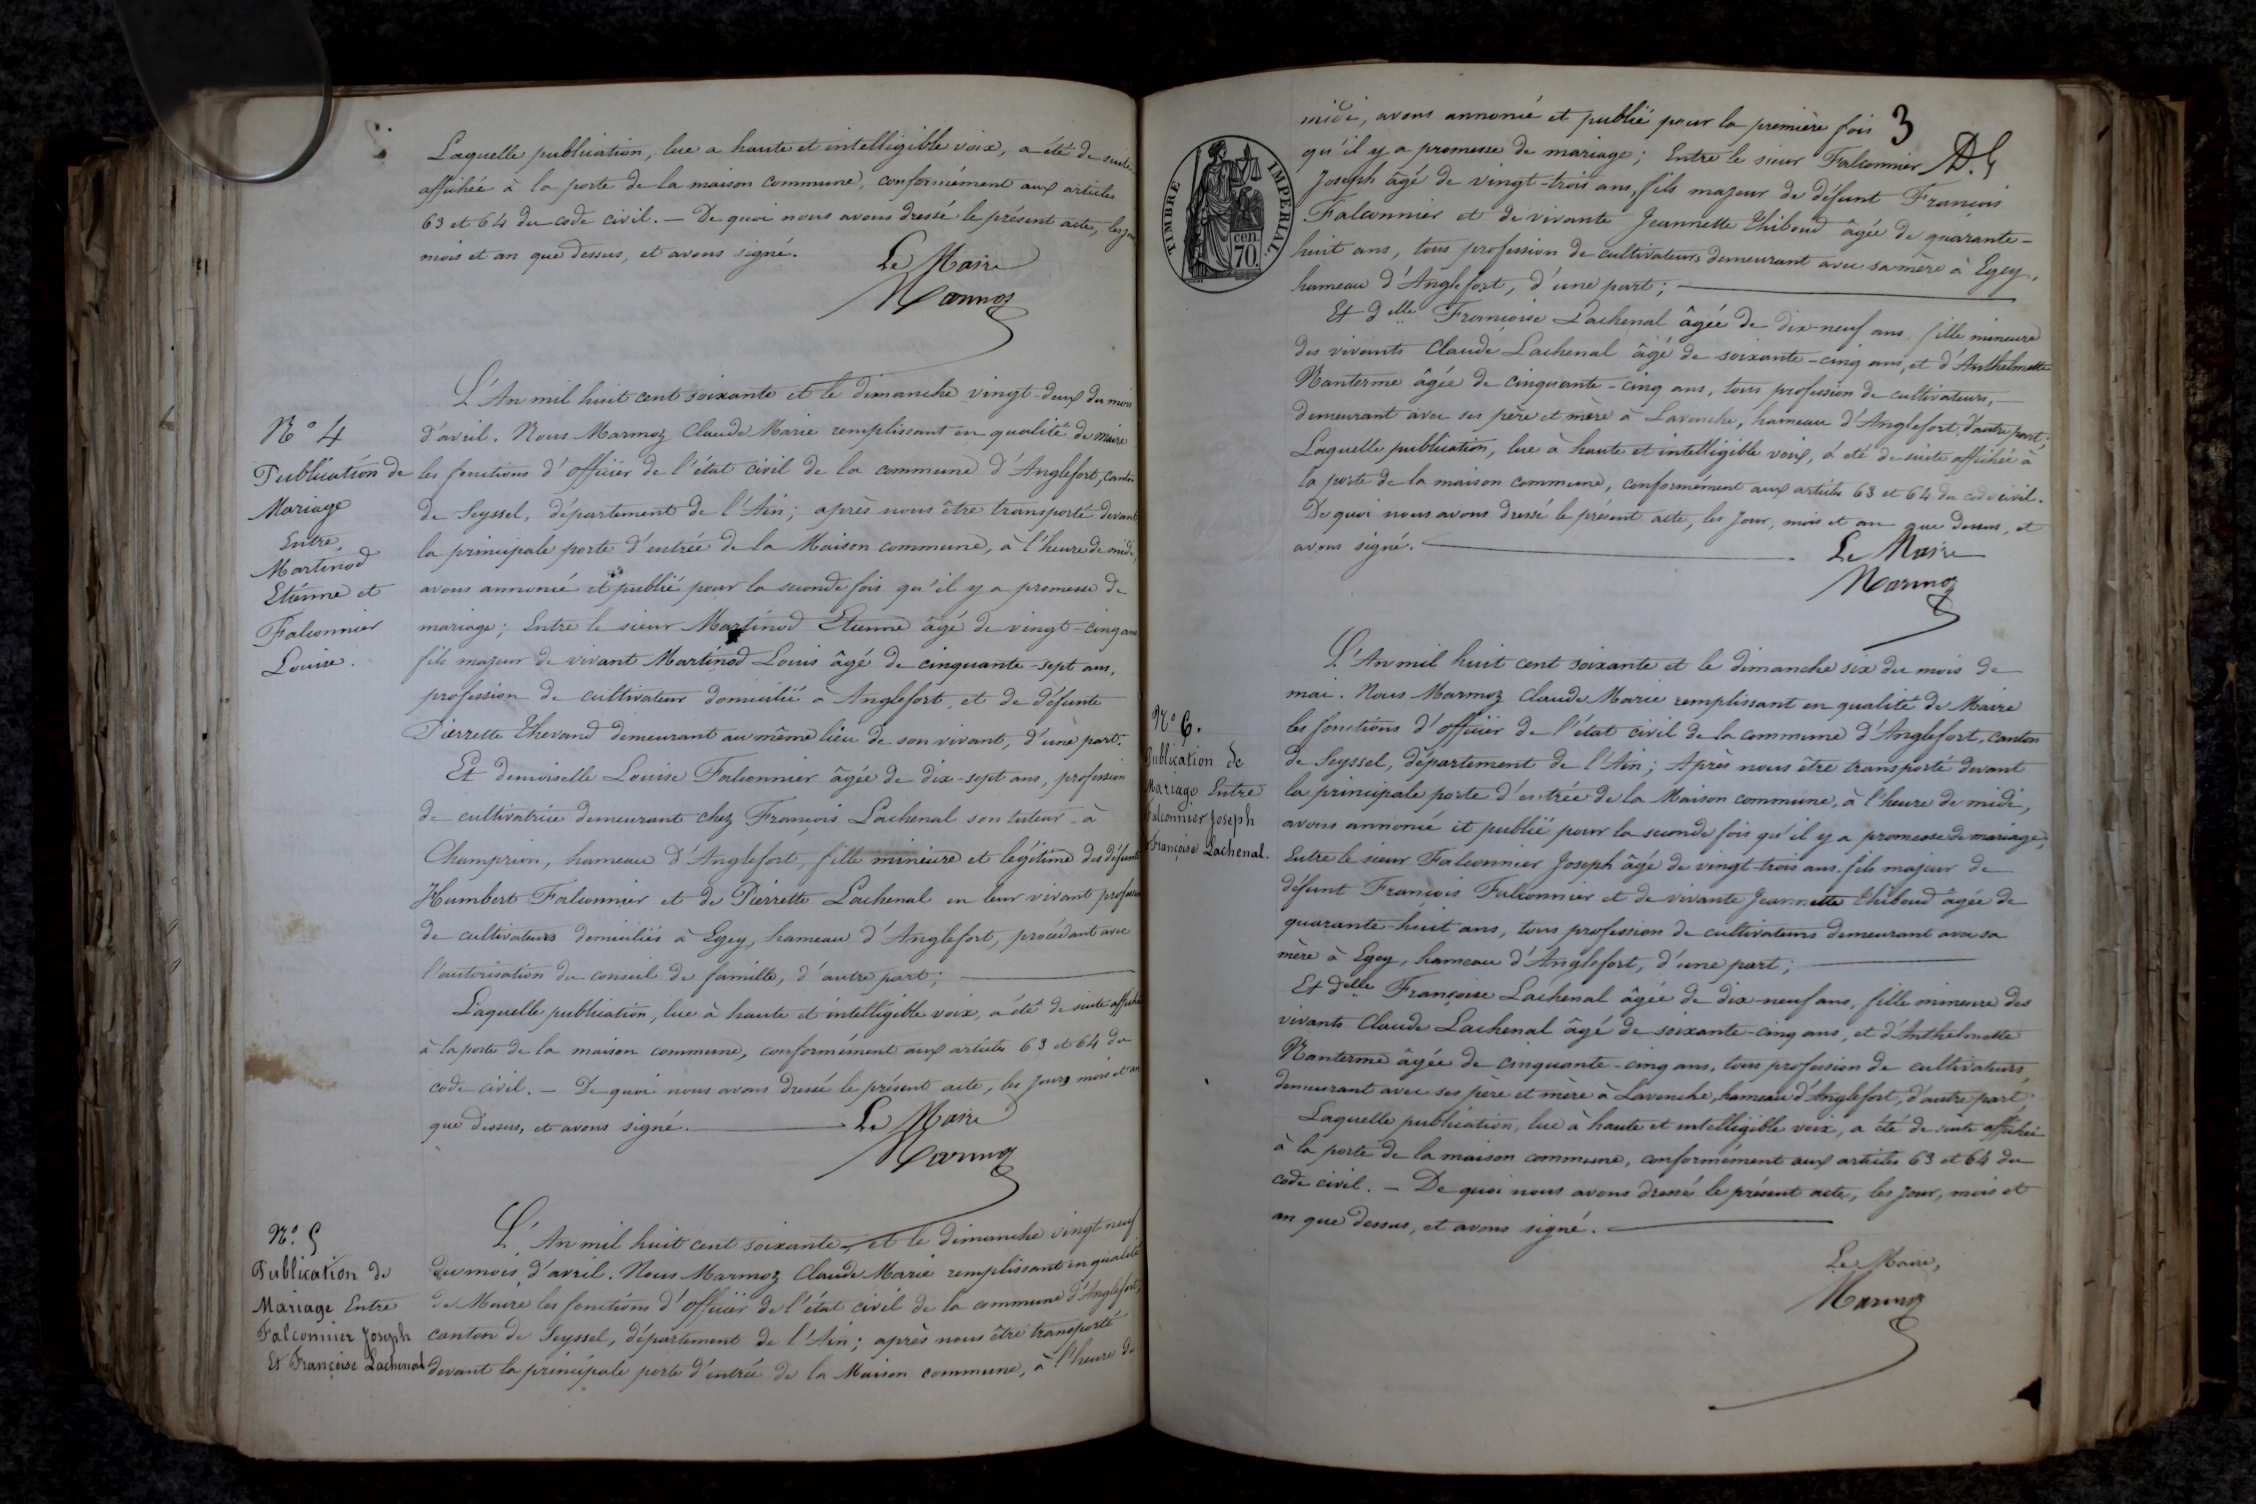 Laquelle publication, lue a haute et intelligible voix, a été de suite
affichée à la porte de la maison commune, conformément aux articles
63 et 64 du code civil. — De quoi nous avons dressé le présent acte, les jour
mois et an que dessus, et avons signé.
Le Maire
Marmoz
N° 4
Publication de
Mariage
Entre
Martinod
Etienne et
Falconnier
Louise.
L'An mil huit cent soixante et le dimanche vingt-deux du mois
d'avril. Nous Marmoz Claude Marie remplissant en qualité de maire
les fonctions d'officier de l'état civil de la commune d'Anglefort, canton
de Seyssel, département de l'Ain; après nous être transporté devant
la principale porte d'entrée de la Maison commune, à l'heure de midi,
avons annoncé et publié pour la seconde fois qu'il y a promesse de
mariage; Entre le sieur Martinod Etienne âgé de vingt-cinq ans
fils majeur de vivant Martinod Louis âgé de cinquante-sept ans,
profession de cultivateur domicilié à Anglefort, et de défunte
Pierrette Thevand demeurant au même lieu de son vivant, d'une part.
Et demoiselle Louise Falconnier âgée de dix-sept ans, profession
de cultivatrice demeurant chez François Lachenal son tuteur à
Champrion, hameau d'Anglefort, fille mineure et légitime des défunts
Humbert Falconnier et de Pierrette Lachenal en leur vivant profession
de cultivateurs domiciliés à Egey, hameau d'Anglefort, procédant avec
l'autorisation du conseil de famille, d'autre part;
Laquelle publication, lue à haute et intelligible voix, a été de suite affichée
à la porte de la maison commune, conformément aux articles 63 et 64 du
code civil. — De quoi nous avons dressé le présent acte, les jours mois et an
que dessus, et avons signé.
Le Maire
Marmoz
N° 5
Publication de
Mariage Entre
Falconnier Joseph
Et Françoise Lachenal
L'An mil huit cent soixante et le dimanche vingt neuf
du mois d'avril. Nous Marmoz Claude Marie remplissant en qualité
de Maire les fonctions d'officier de l'état civil de la commune d'Anglefort,
canton de Seyssel, département de l'Ain; après nous être transporté
devant la principale porte d'entrée de la Maison commune, à l'heure de
3
TIMBRE IMPERIAL.
cen.
70.
midi, avons annoncé et publié pour la première fois
qu'il y a promesse de mariage; Entre le sieur Falconnier
Joseph âgé de vingt-trois ans, fils majeur de défunt François
Falconnier et de vivante Jeannette Thiboud âgée de quarante-
huit ans, tous profession de cultivateurs demeurant avec sa mère à Egey,
hameau d'Anglefort, d'une part;
Et delle Françoise Lachenal âgée de dix-neuf ans, fille mineure
des vivants Claude Lachenal âgé de soixante-cinq ans, et d'Anthelmette
Nanterme âgée de cinquante-cinq ans, tous profession de cultivateurs,
demeurant avec ses père et mère à Lavenche, hameau d'Anglefort, d'autre part;
Laquelle publication, lue à haute et intelligible voix, a été de suite affichée à
la porte de la maison commune, conformément aux articles 63 et 64 du code civil.
De quoi nous avons dressé le présent acte, les jour, mois et an que dessus, et
avons signé.
Le Maire
Marmoz
N° 6.
Publication de
Mariage Entre
Falconnier Joseph
Françoise Lachenal.
L'An mil huit cent soixante et le dimanche six du mois de
mai. Nous Marmoz Claude Marie remplissant en qualité de Maire
les fonctions d'officier de l'état civil de la commune d'Anglefort, canton
de Seyssel, département de l'Ain; Après nous être transporté devant
la principale porte d'entrée de la Maison commune, à l'heure de midi,
avons annoncé et publié pour la seconde fois qu'il y a promesse de mariage;
Entre le sieur Falconnier Joseph âgé de vingt-trois ans, fils majeur de
défunt François Falconnier et de vivante Jeannette Thiboud âgée de
quarante-huit ans, tous profession de cultivateurs demeurant avec sa
mère à Egey, hameau d'Anglefort, d'une part;
Et delle Françoise Lachenal âgée de dix-neuf ans, fille mineure des
vivants Claude Lachenal âgé de soixante-cinq ans, et d'Anthelmette
Nanterme âgée de cinquante-cinq ans, tous profession de cultivateurs
demeurant avec ses père et mère à Lavenche, hameau d'Anglefort, d'autre part.
Laquelle publication, lue à haute et intelligible voix, a été de suite affichée
à la porte de la maison commune, conformément aux articles 63 et 64 du
code civil. — De quoi nous avons dressé le présent acte, les jour, mois et
an que dessus, et avons signé.
Le Maire,
Marmoz